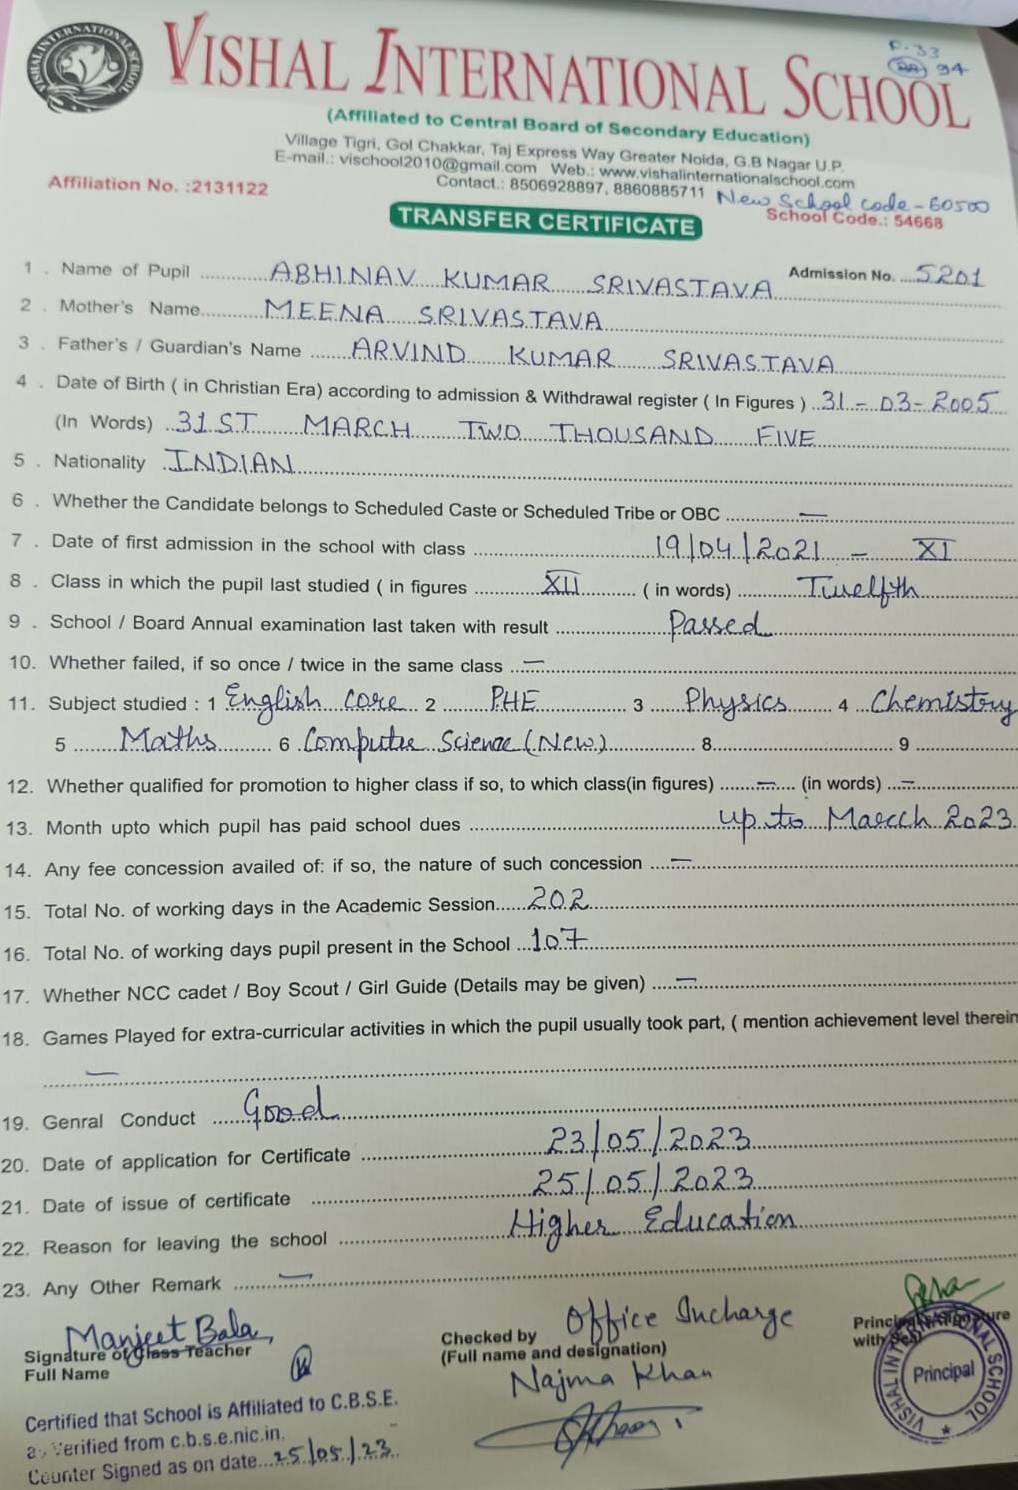 VISHAL INTERNATIONAL SCHOOL
P-33
94
(Affiliated to Central Board of Secondary Education)
Village Tigri, Gol Chakkar, Taj Express Way Greater Noida, G.B Nagar U.P.
E-mail.: vischool2010@gmail.com Web.: www.vishalinternationalschool.com
Affiliation No. :2131122
Contact.: 8506928897, 8860885711
New School code - 60500
School Code.: 54668
TRANSFER CERTIFICATE
1 . Name of Pupil ABHINAV KUMAR SRIVASTAVA Admission No. 5201
2 . Mother's Name MEENA SRIVASTAVA
3 . Father's / Guardian's Name ARVIND KUMAR SRIVASTAVA
4 . Date of Birth ( in Christian Era) according to admission & Withdrawal register ( In Figures ) 31-03-2005
(In Words) 31ST MARCH TWO THOUSAND FIVE
5 . Nationality INDIAN
6 . Whether the Candidate belongs to Scheduled Caste or Scheduled Tribe or OBC —
7 . Date of first admission in the school with class 19/04/2021 - XI
8 . Class in which the pupil last studied ( in figures XII ( in words) Twelfth
9 . School / Board Annual examination last taken with result Passed
10. Whether failed, if so once / twice in the same class —
11. Subject studied : 1 English Core 2 PHE 3 Physics 4 Chemistry
5 Maths 6 Computer Science (New) 8 9
12. Whether qualified for promotion to higher class if so, to which class(in figures) — (in words) —
13. Month upto which pupil has paid school dues up to March 2023
14. Any fee concession availed of: if so, the nature of such concession —
15. Total No. of working days in the Academic Session 202
16. Total No. of working days pupil present in the School 107
17. Whether NCC cadet / Boy Scout / Girl Guide (Details may be given) —
18. Games Played for extra-curricular activities in which the pupil usually took part, ( mention achievement level therein
—
19. Genral Conduct Good
20. Date of application for Certificate 23/05/2023
21. Date of issue of certificate 25/05/2023
22. Reason for leaving the school Higher Education
23. Any Other Remark —
Manjeet Bala
Signature of Class Teacher
Full Name
Checked by Office Incharge
(Full name and designation)
Najma Khan
Principal Signature
with Seal
VISHAL INTERNATIONAL SCHOOL
Principal
Certified that School is Affiliated to C.B.S.E.
as Verified from c.b.s.e.nic.in.
Counter Signed as on date 25/05/23